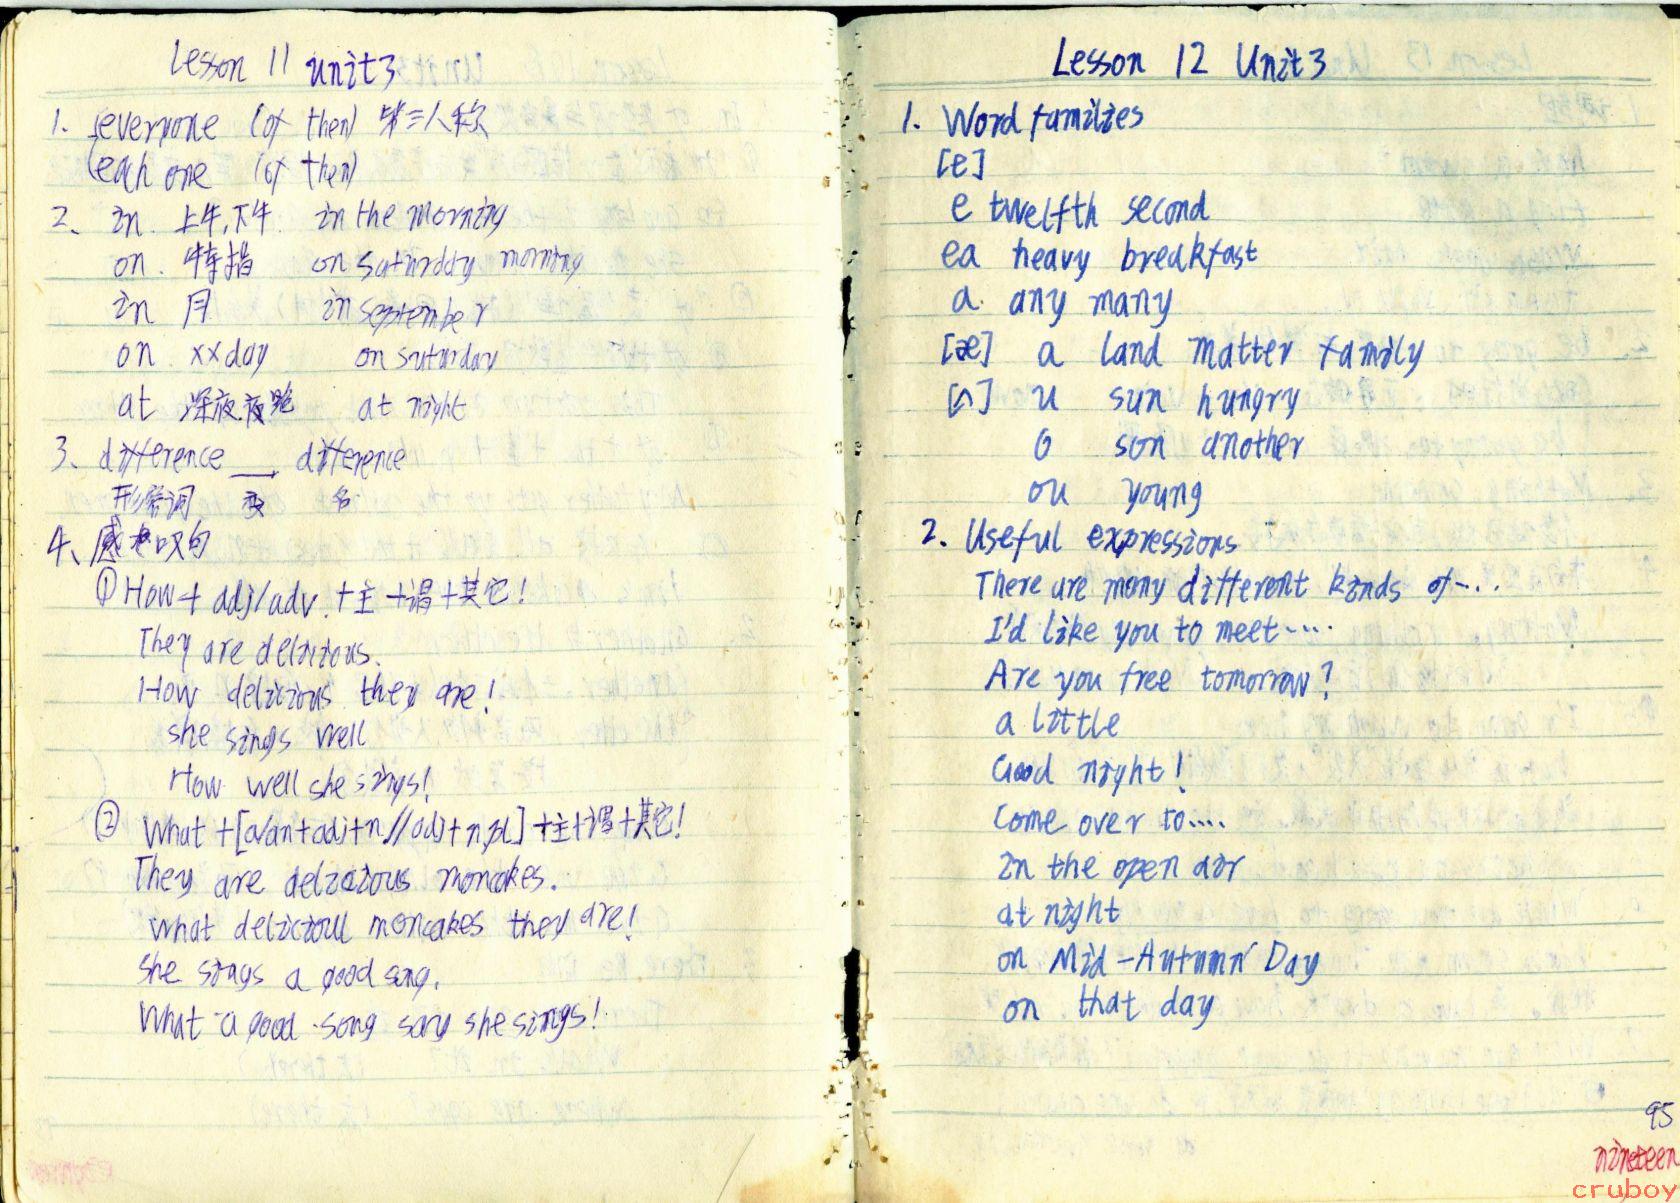 Lesson 11 unit3
1. everyone (of then) 第三人称
each one (of then)
2、 in. 上午,下午. in the morning
on. 特指 on saturday morning
in 月 in september
on xxday on saturday
at 深夜.夜晚 at night
3、 difference → difference
形容词 变 名
4、感叹句
① How + adj/adv. +主+谓+其它!
They are delicious.
How delicious they are!
she sings well
How well she sings!
② What +[a/an+adj+n.//adj+n,pl]+主+谓+其它!
They are delicious moncakes.
what delicioul moncakes they are!
she sings a good song.
What a good song she sings!
Lesson 12 Unit3
1. Word families
[e]
e twelfth second
ea heavy breakfast
a any many
[æ] a land matter family
[ʌ] u sun hungry
o son another
ou young
2. Useful expressions
There are many different kinds of...
I'd like you to meet....
Are you free tomorrow?
a little
Good night!
Come over to....
in the open air
at night
on Mid-Autumn Day
on that day
95
nineteen
cruboy